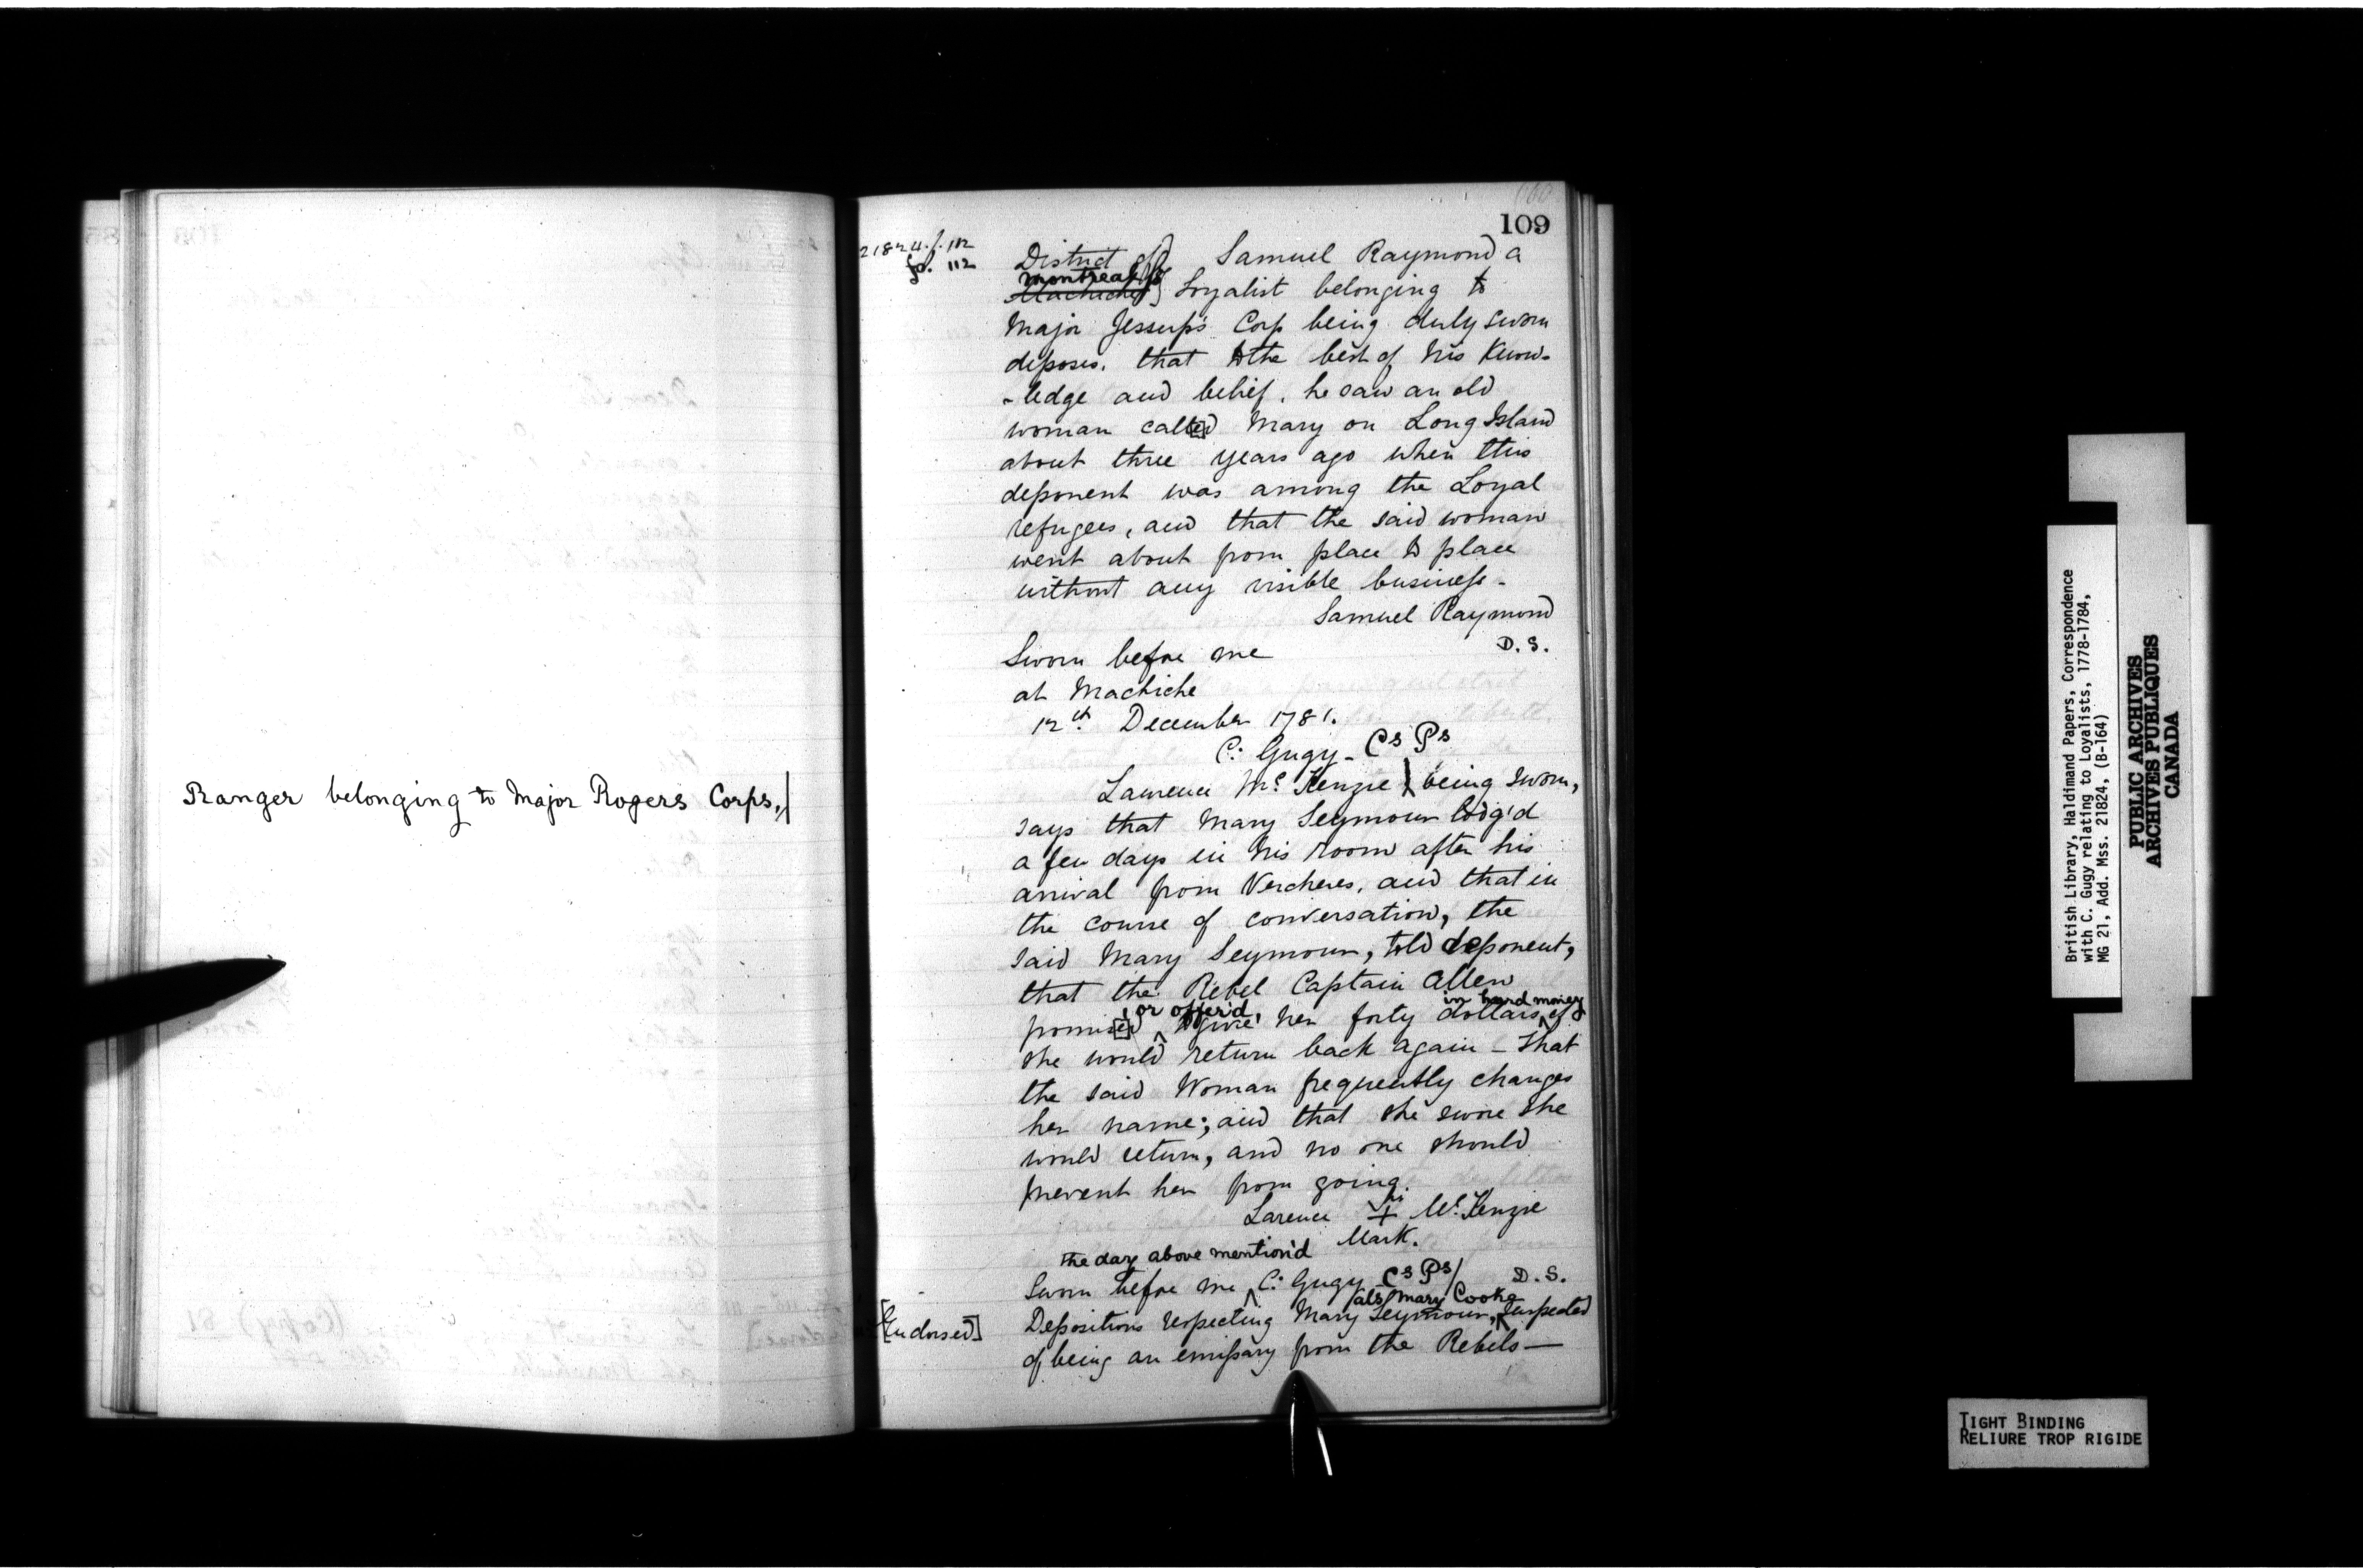 Ranger belonging to Major Rogers Corps,/
109
21824. f. 112
fol. 112
District of } Samuel Raymond a
Montreal
Machiche } Loyalist belonging to
Major Jessup's Corp being duly sworn
deposes, that to the best of his Know-
-ledge and belief, he saw an old
woman called Mary on Long Island
about three years ago when this
deponent was among the Loyal
refugees, and that the said woman
went about from place to place
without any visible business -
Samuel Raymond
D. S.
Sworn before me
at Machiche
12th December 1781.
C: Gugy - Cs Ps
Laurence Mc Kenzie / being sworn,
says that Mary Seymour lodg'd
a few days in his room after his
arrival from Vercheres, and that in
the course of conversation, the
said Mary Seymour, told deponent,
that the Rebel Captain Allen
, or offer'd, in hard money
promised ^ to give her forty dollars ^ if
she would return back again - that
the said Woman frequently changes
her name; and that she swore she
would return, and no one should
prevent her from going.
his
Larence + Mc Kenzie
Mark.
the day above mention'd
Sworn before me ^ C: Gugy Cs Ps/ D. S.
als Mary Cooke
[Endorsed] Depositions respecting Mary Seymour, ^ suspected
of being an emissary from the Rebels —
British Library, Haldimand Papers, Correspondence
with C. Gugy relating to Loyalists, 1778-1784,
MG 21, Add. Mss. 21824, (B-164)
PUBLIC ARCHIVES
ARCHIVES PUBLIQUES
CANADA
TIGHT BINDING
RELIURE TROP RIGIDE